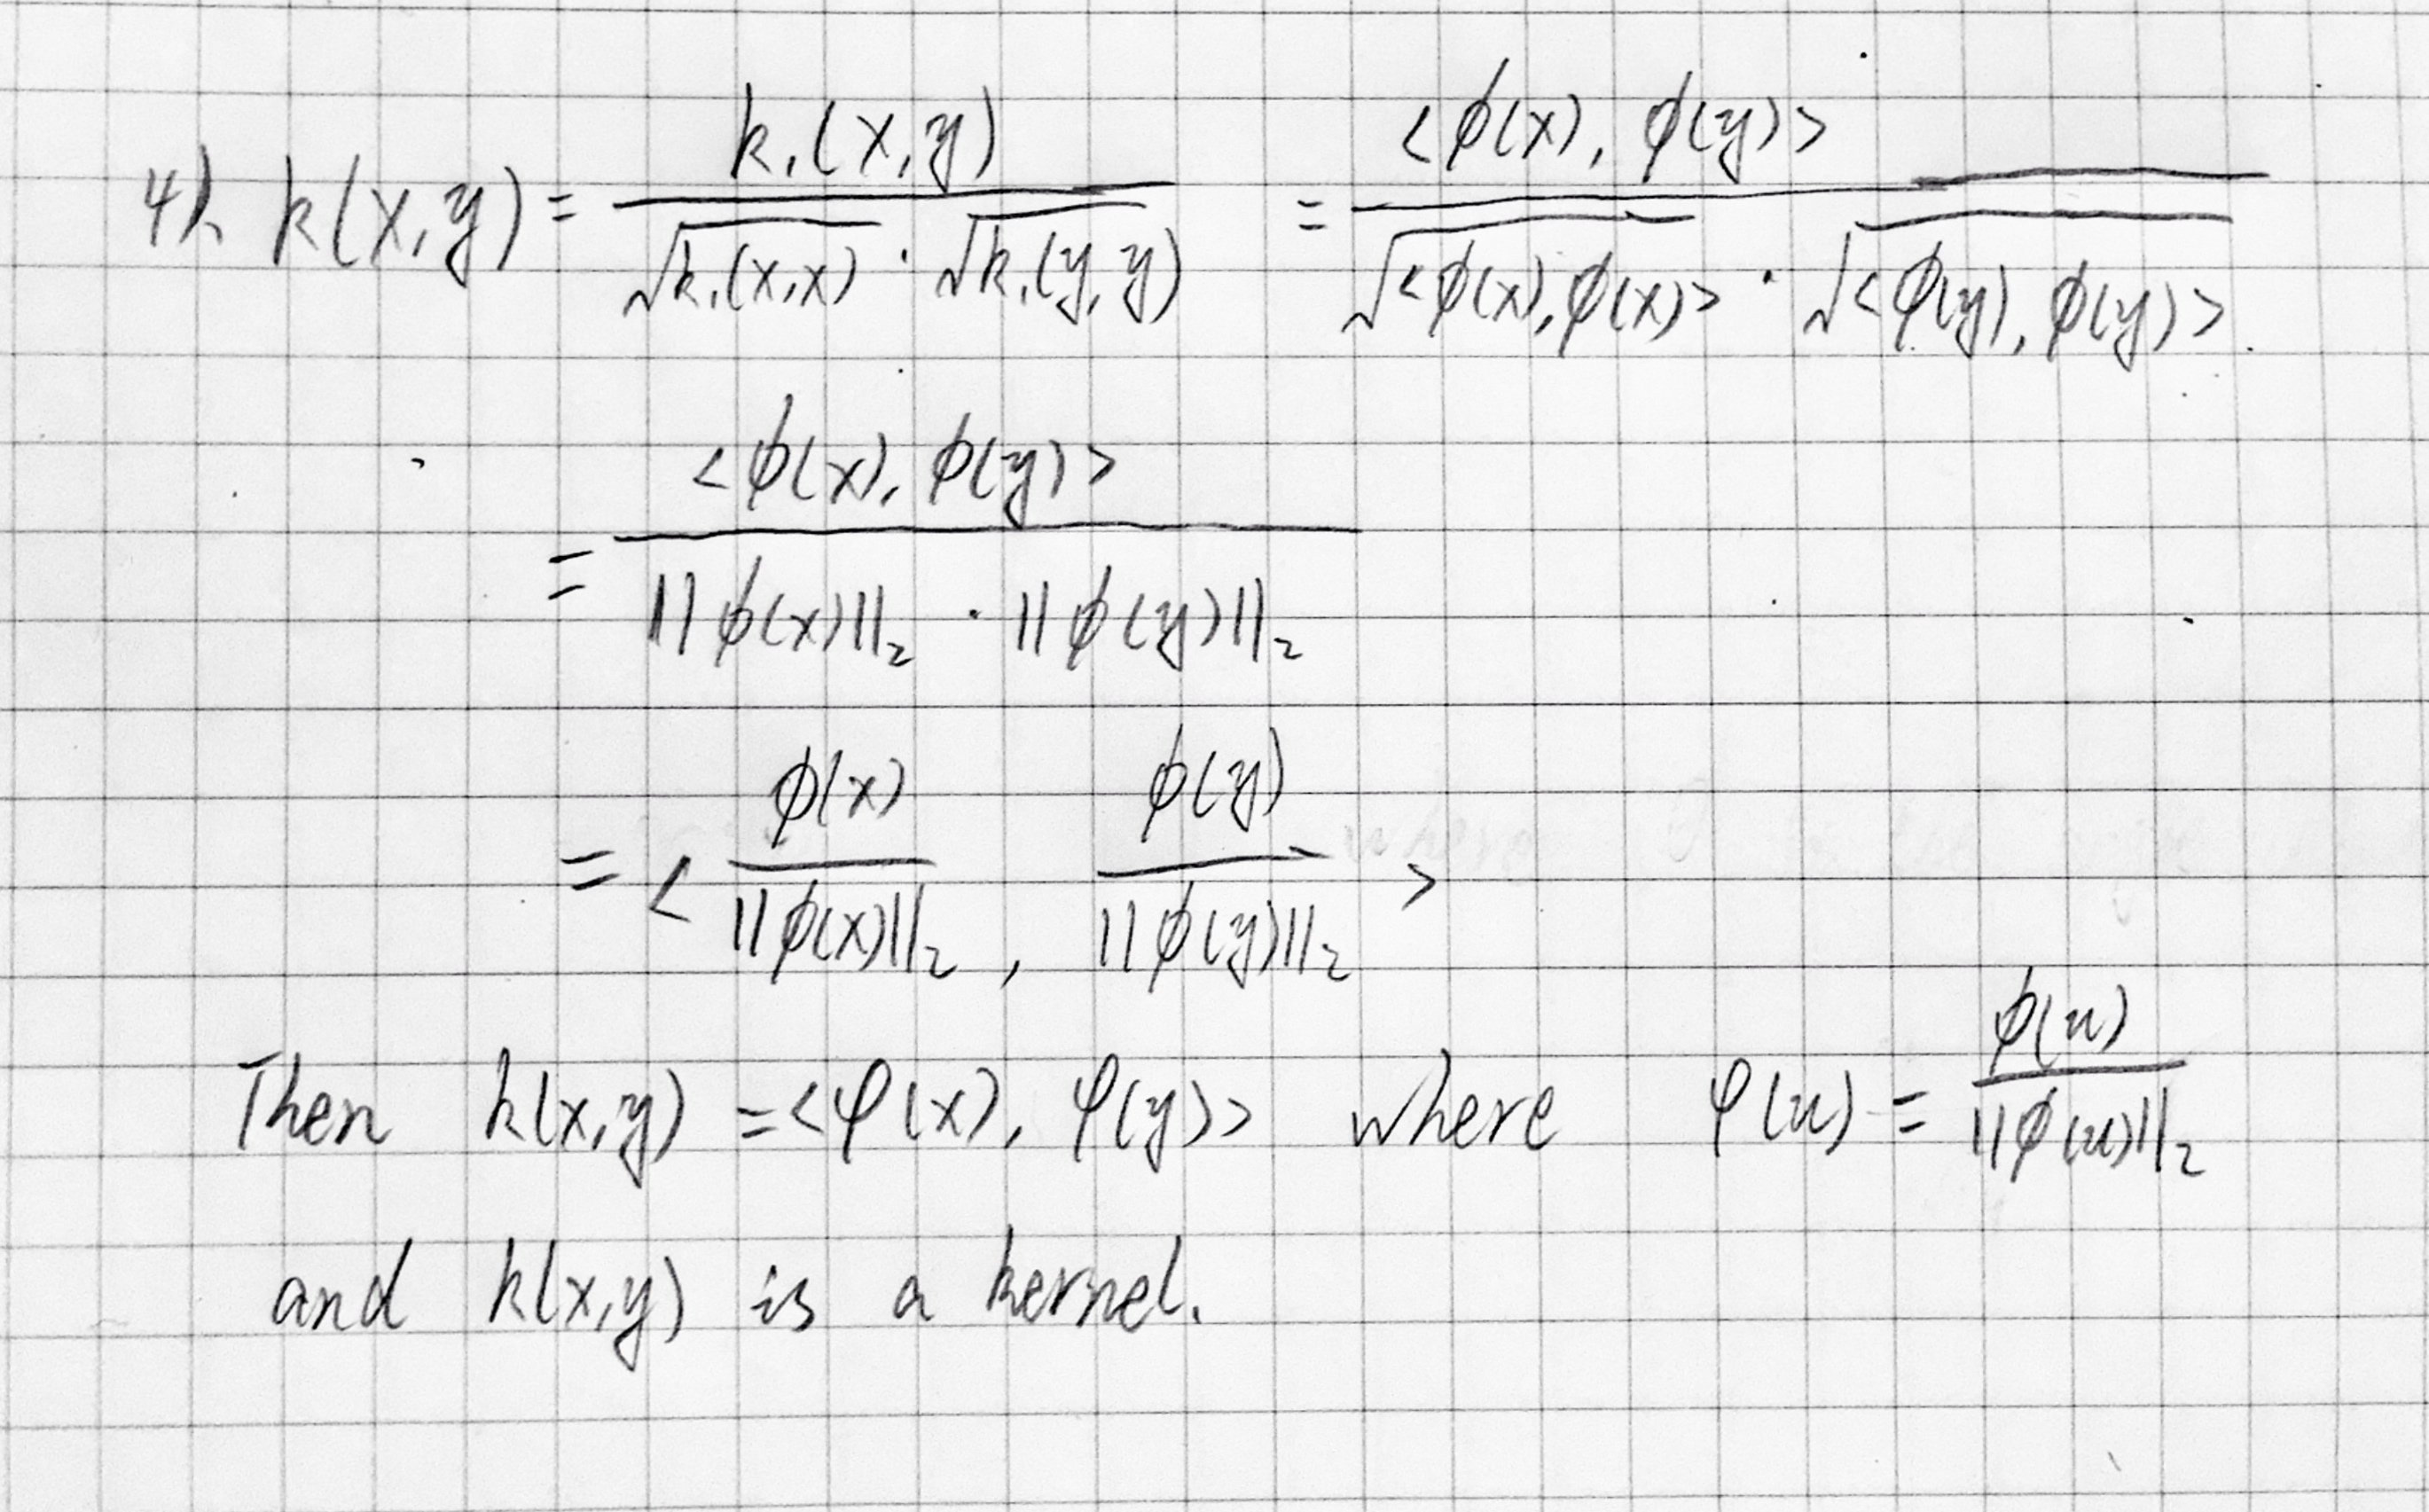 4). k(x,y) = k₁(x,y) / (√k₁(x,x) · √k₁(y,y)) = <ϕ(x), ϕ(y)> / (√<ϕ(x),ϕ(x)> · √<ϕ(y), ϕ(y)>)
= <ϕ(x), ϕ(y)> / (||ϕ(x)||₂ · ||ϕ(y)||₂)
= < ϕ(x) / ||ϕ(x)||₂ , ϕ(y) / ||ϕ(y)||₂ >
Then k(x,y) = <φ(x), φ(y)> where φ(u) = ϕ(u) / ||ϕ(u)||₂
and k(x,y) is a kernel.